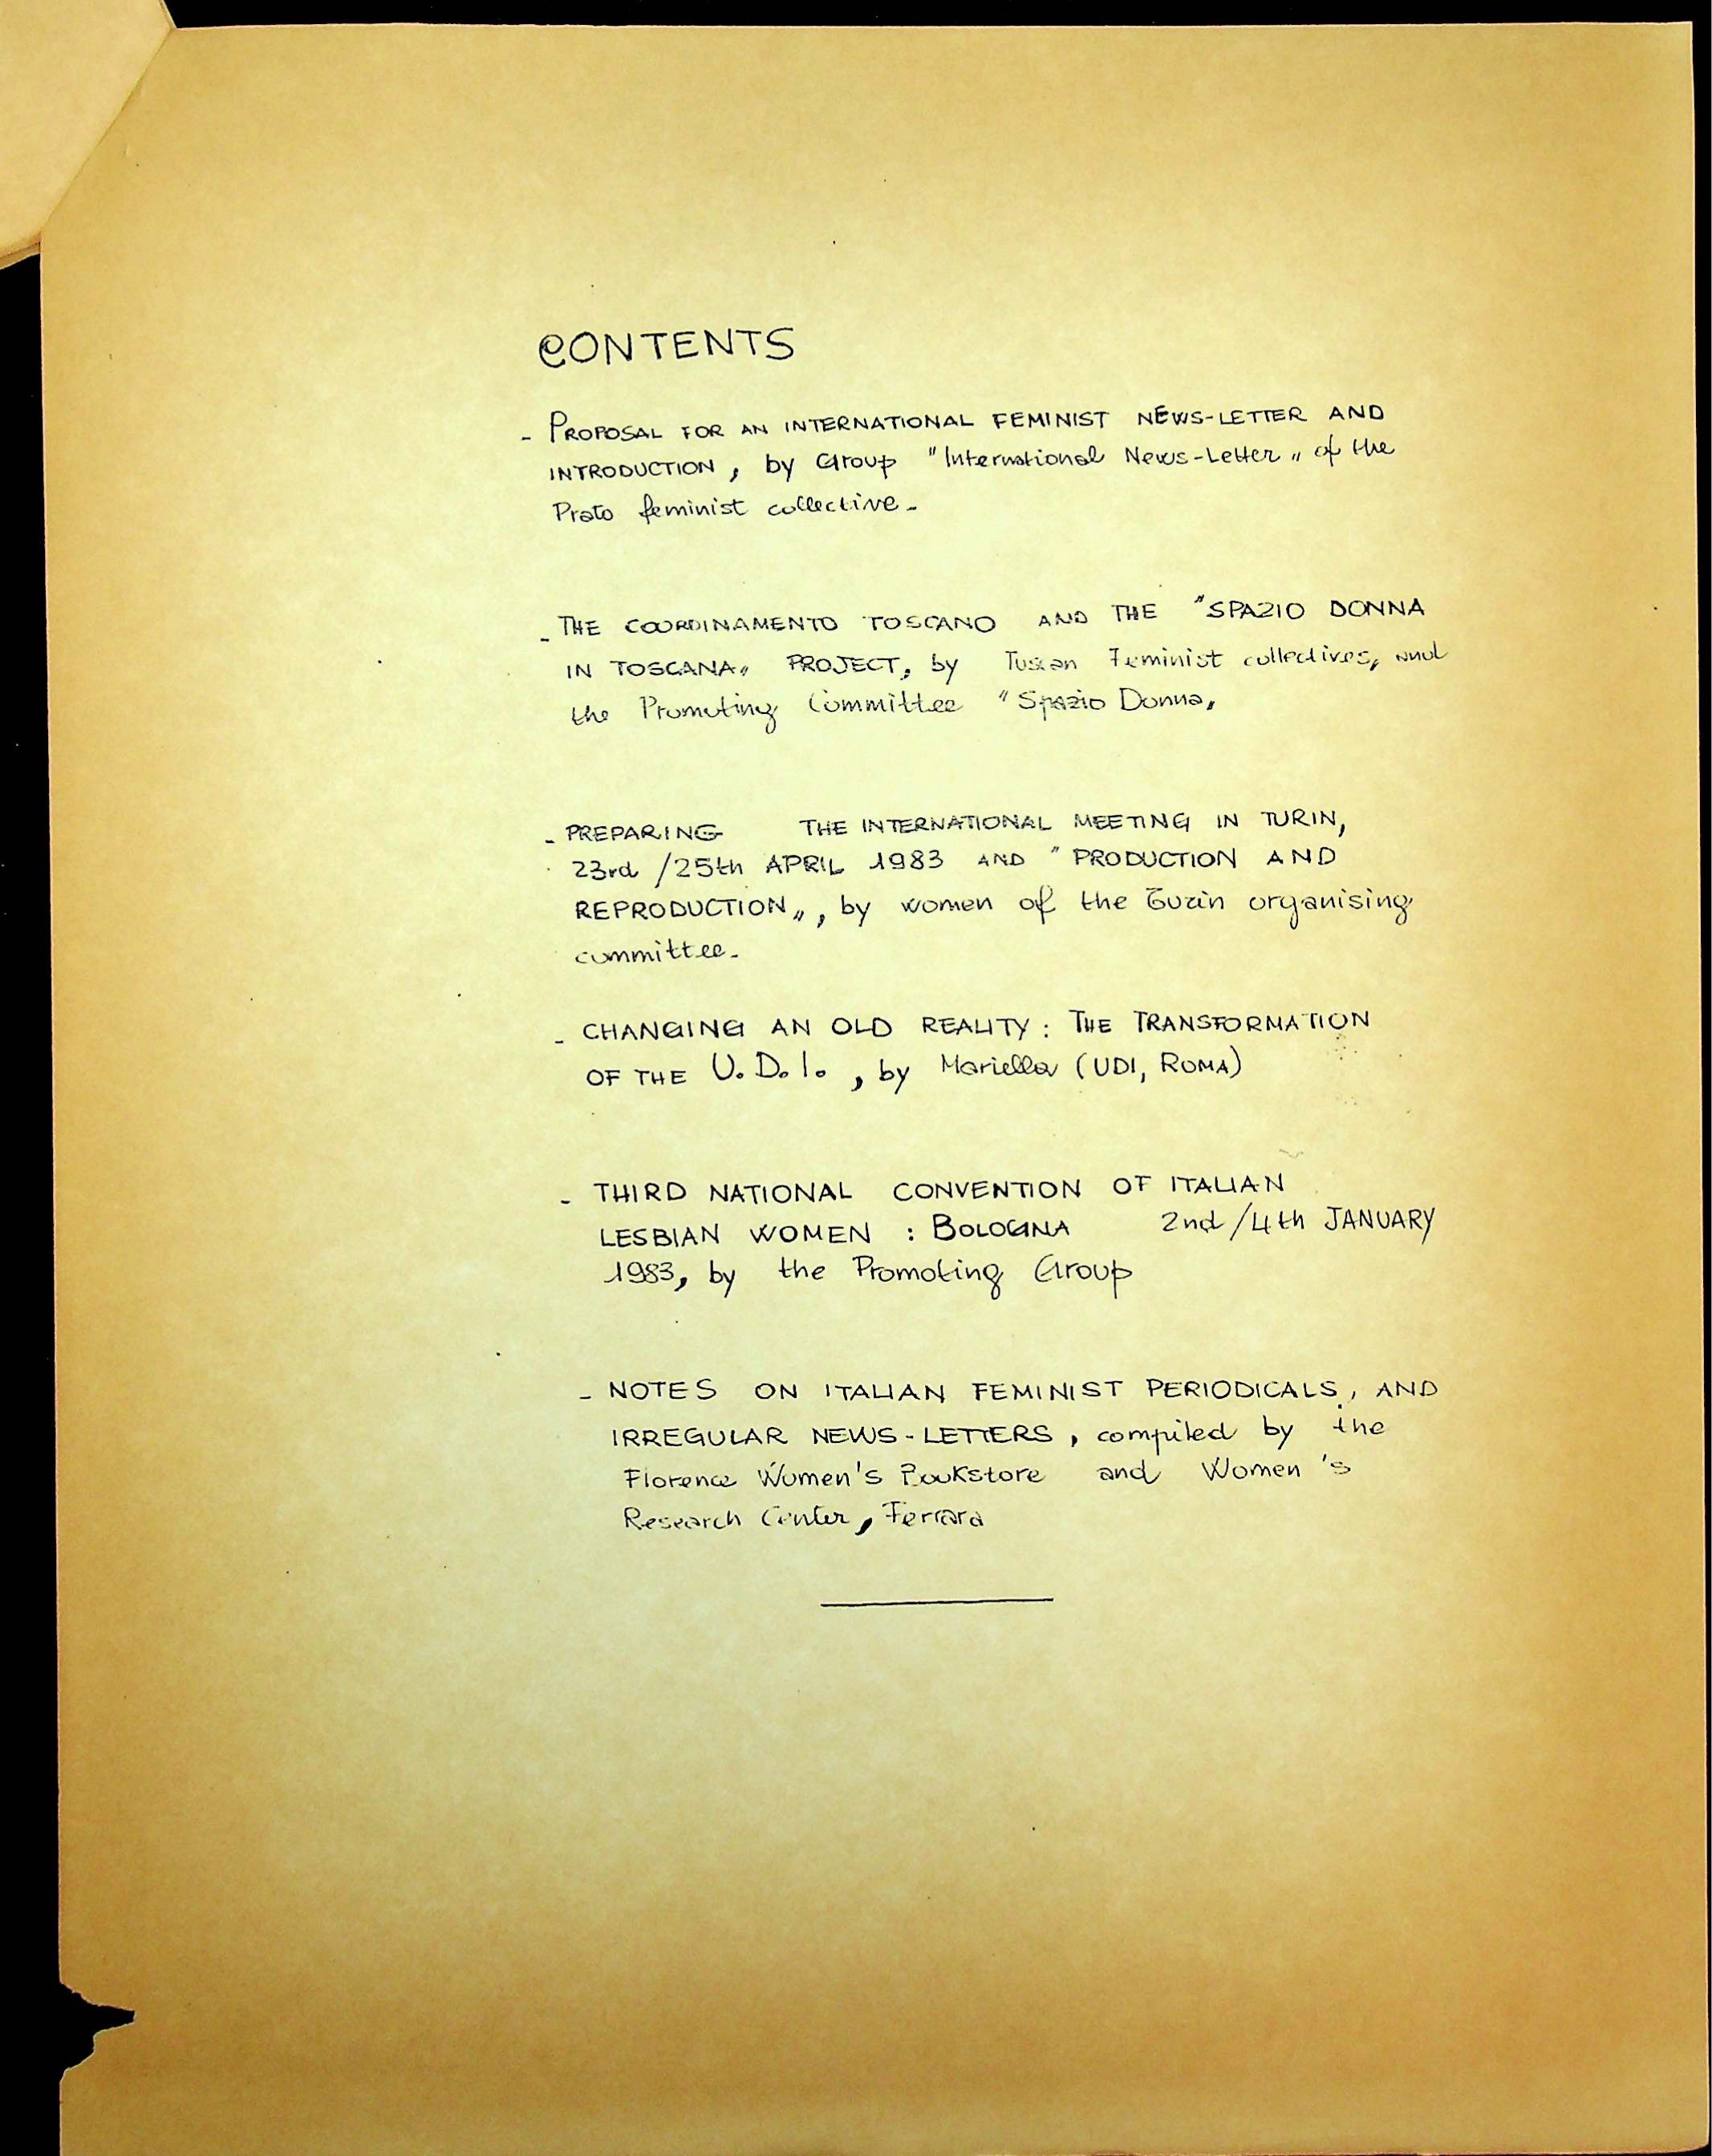 CONTENTS
- PROPOSAL FOR AN INTERNATIONAL FEMINIST NEWS-LETTER AND
INTRODUCTION, by Group "International News-Letter„ of the
Prato feminist collective-
- THE COORDINAMENTO TOSCANO AND THE "SPAZIO DONNA
IN TOSCANA„ PROJECT, by Tuscan Feminist collectives, and
the Promoting Committee "Spazio Donna„
- PREPARING THE INTERNATIONAL MEETING IN TURIN,
23rd /25th APRIL 1983 AND "PRODUCTION AND
REPRODUCTION„, by women of the Turin organising
committee-
- CHANGING AN OLD REALITY: THE TRANSFORMATION
OF THE U.D.I., by Mariella (UDI, ROMA)
- THIRD NATIONAL CONVENTION OF ITALIAN
LESBIAN WOMEN : BOLOGNA 2nd/4th JANUARY
1983, by the Promoting Group
- NOTES ON ITALIAN FEMINIST PERIODICALS, AND
IRREGULAR NEWS-LETTERS, compiled by the
Florence Women's Bookstore and Women's
Research Center, Ferrara